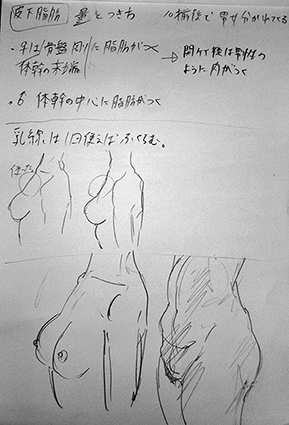 皮下脂肪 量とつき方
10歳後で男女分かれてくる
・♀は骨盤周りに脂肪がつく
体幹の末端
→閉経後は男性の
ように肉がつく
・♂ 体幹の中心に脂肪がつく
乳線は1回使えばふくらむ。